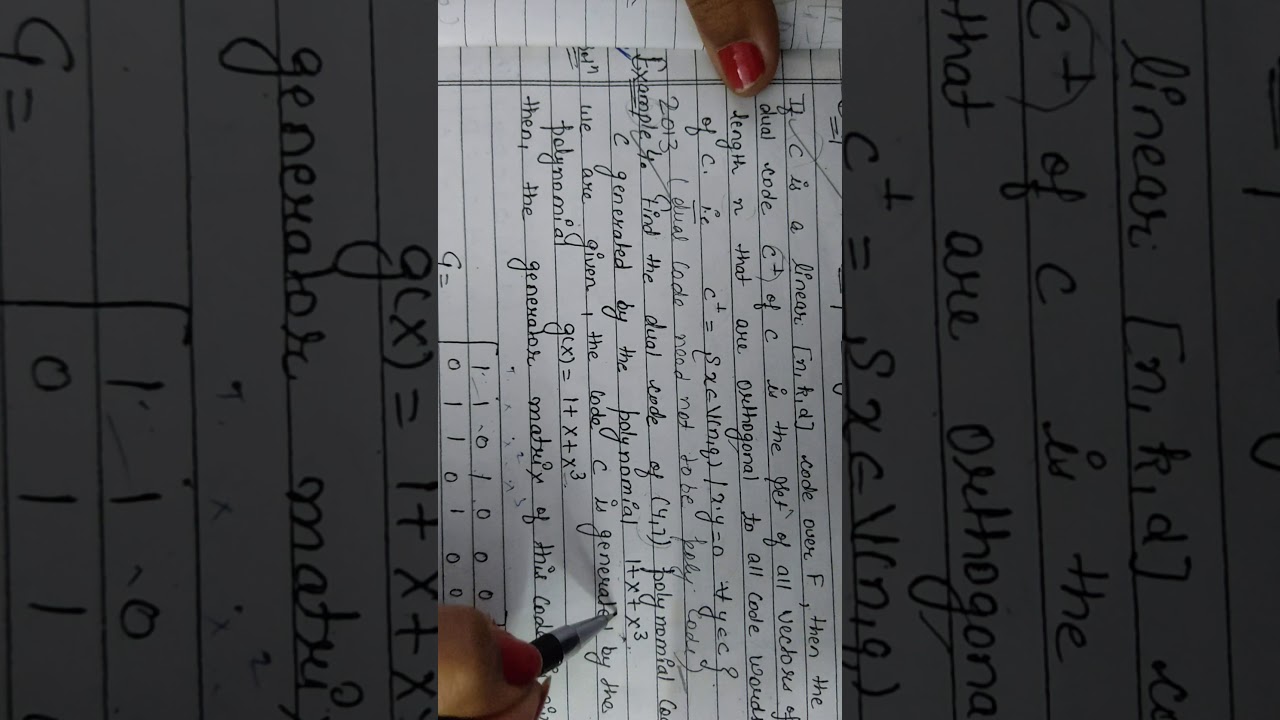 If C is a linear [n, k, d] code over F, then the
dual code C⊥ of C is the set of all vectors of
length n that are orthogonal to all code words
of C. ie C⊥ = {x ∈ V(n,q) / x.y = 0 ∀ y ∈ C}
2013 (dual Code need not to be poly. Code)
Example 4. Find the dual code of (4,7) polynomial
C generated by the polynomial 1+x+x³
Solⁿ We are given, the code C is generated by the
polynomial g(x) = 1+x+x³.
then, the generator matrix of this Code
G = 1 1 0 1 0 0 0
0 1 1 0 1 0 0